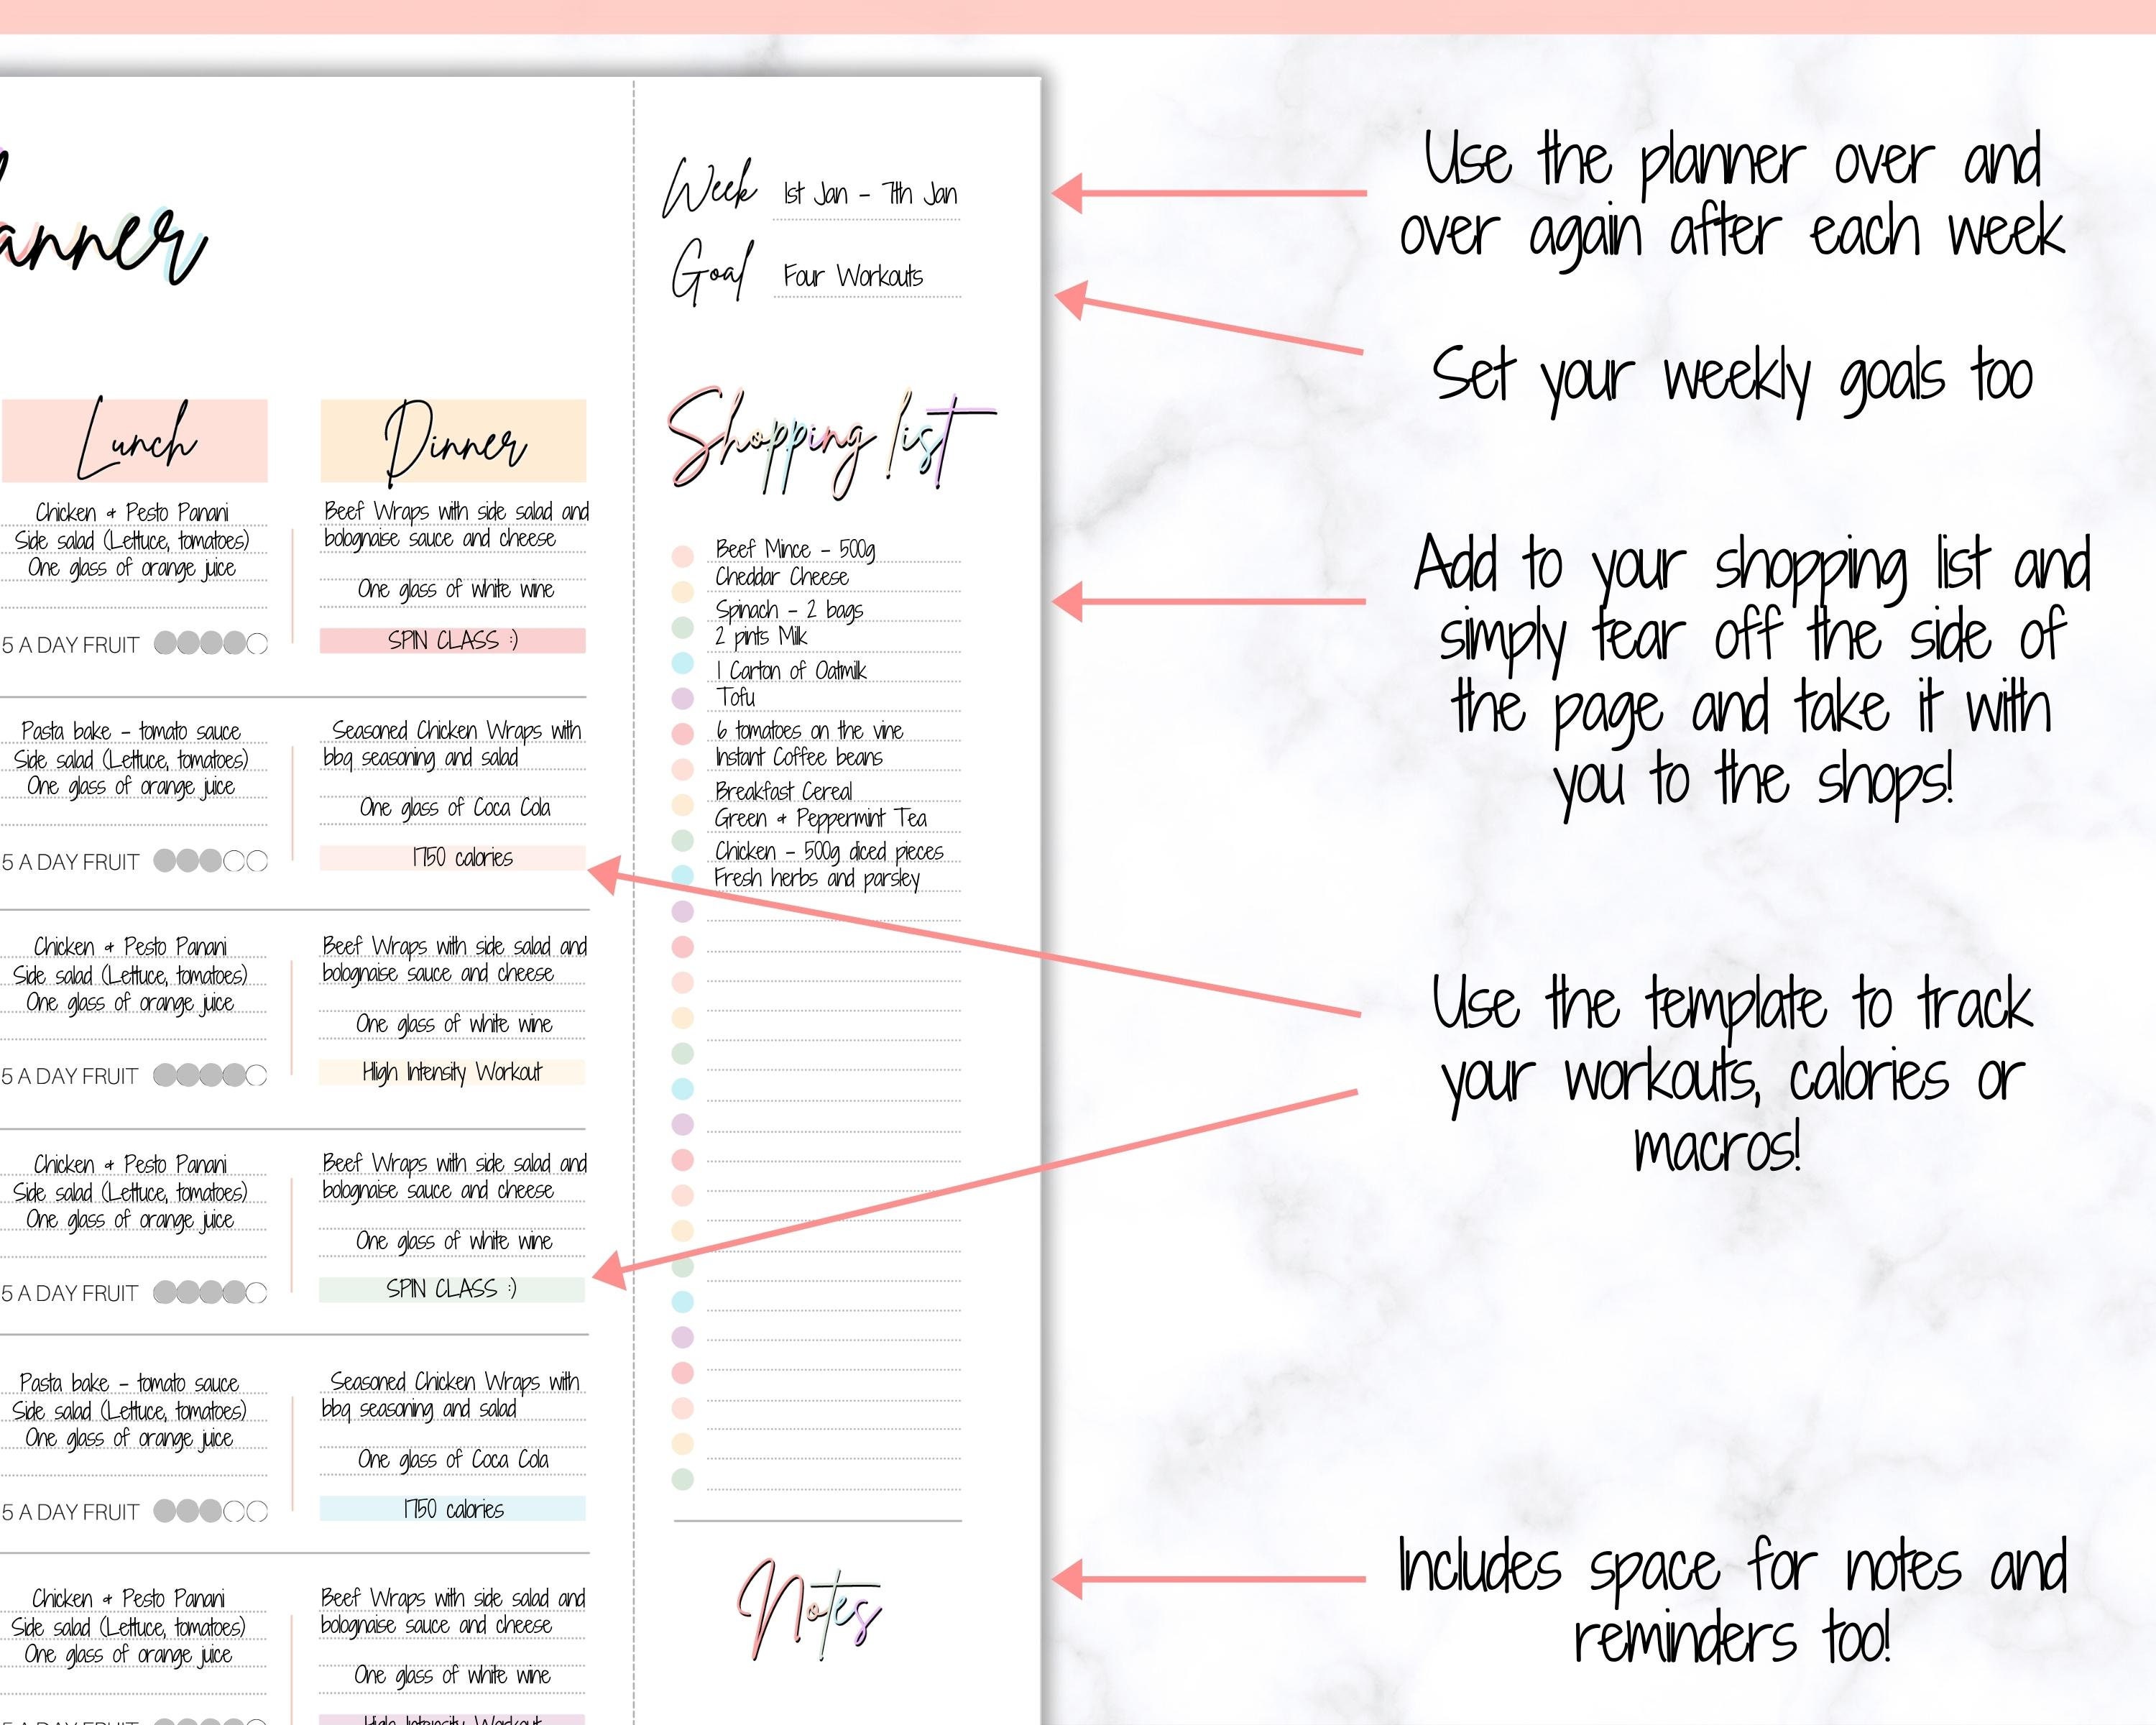 anner
Week 1st Jan - 7th Jan
Goal Four Workouts
Lunch
Dinner
Chicken & Pesto Panani
Side salad (Lettuce, tomatoes)
One glass of orange juice
5 A DAY FRUIT
Beef Wraps with side salad and
bolognaise sauce and cheese
One glass of white wine
SPIN CLASS :)
Pasta bake - tomato sauce
Side salad (Lettuce, tomatoes)
One glass of orange juice
5 A DAY FRUIT
Seasoned Chicken Wraps with
bbq seasoning and salad
One glass of Coca Cola
1750 calories
Chicken & Pesto Panani
Side salad (Lettuce, tomatoes)
One glass of orange juice
5 A DAY FRUIT
Beef Wraps with side salad and
bolognaise sauce and cheese
One glass of white wine
High Intensity Workout
Chicken & Pesto Panani
Side salad (Lettuce, tomatoes)
One glass of orange juice
5 A DAY FRUIT
Beef Wraps with side salad and
bolognaise sauce and cheese
One glass of white wine
SPIN CLASS :)
Pasta bake - tomato sauce
Side salad (Lettuce, tomatoes)
One glass of orange juice
5 A DAY FRUIT
Seasoned Chicken Wraps with
bbq seasoning and salad
One glass of Coca Cola
1750 calories
Chicken & Pesto Panani
Side salad (Lettuce, tomatoes)
One glass of orange juice
Beef Wraps with side salad and
bolognaise sauce and cheese
One glass of white wine
High Intensity Workout
Shopping list
Beef Mince - 500g
Cheddar Cheese
Spinach - 2 bags
2 pints Milk
1 Carton of Oatmilk
Tofu
6 tomatoes on the vine
Instant Coffee beans
Breakfast Cereal
Green & Peppermint Tea
Chicken - 500g diced pieces
Fresh herbs and parsley
Notes
Use the planner over and
over again after each week
Set your weekly goals too
Add to your shopping list and
simply tear off the side of
the page and take it with
you to the shops!
Use the template to track
your workouts, calories or
macros!
Includes space for notes and
reminders too!